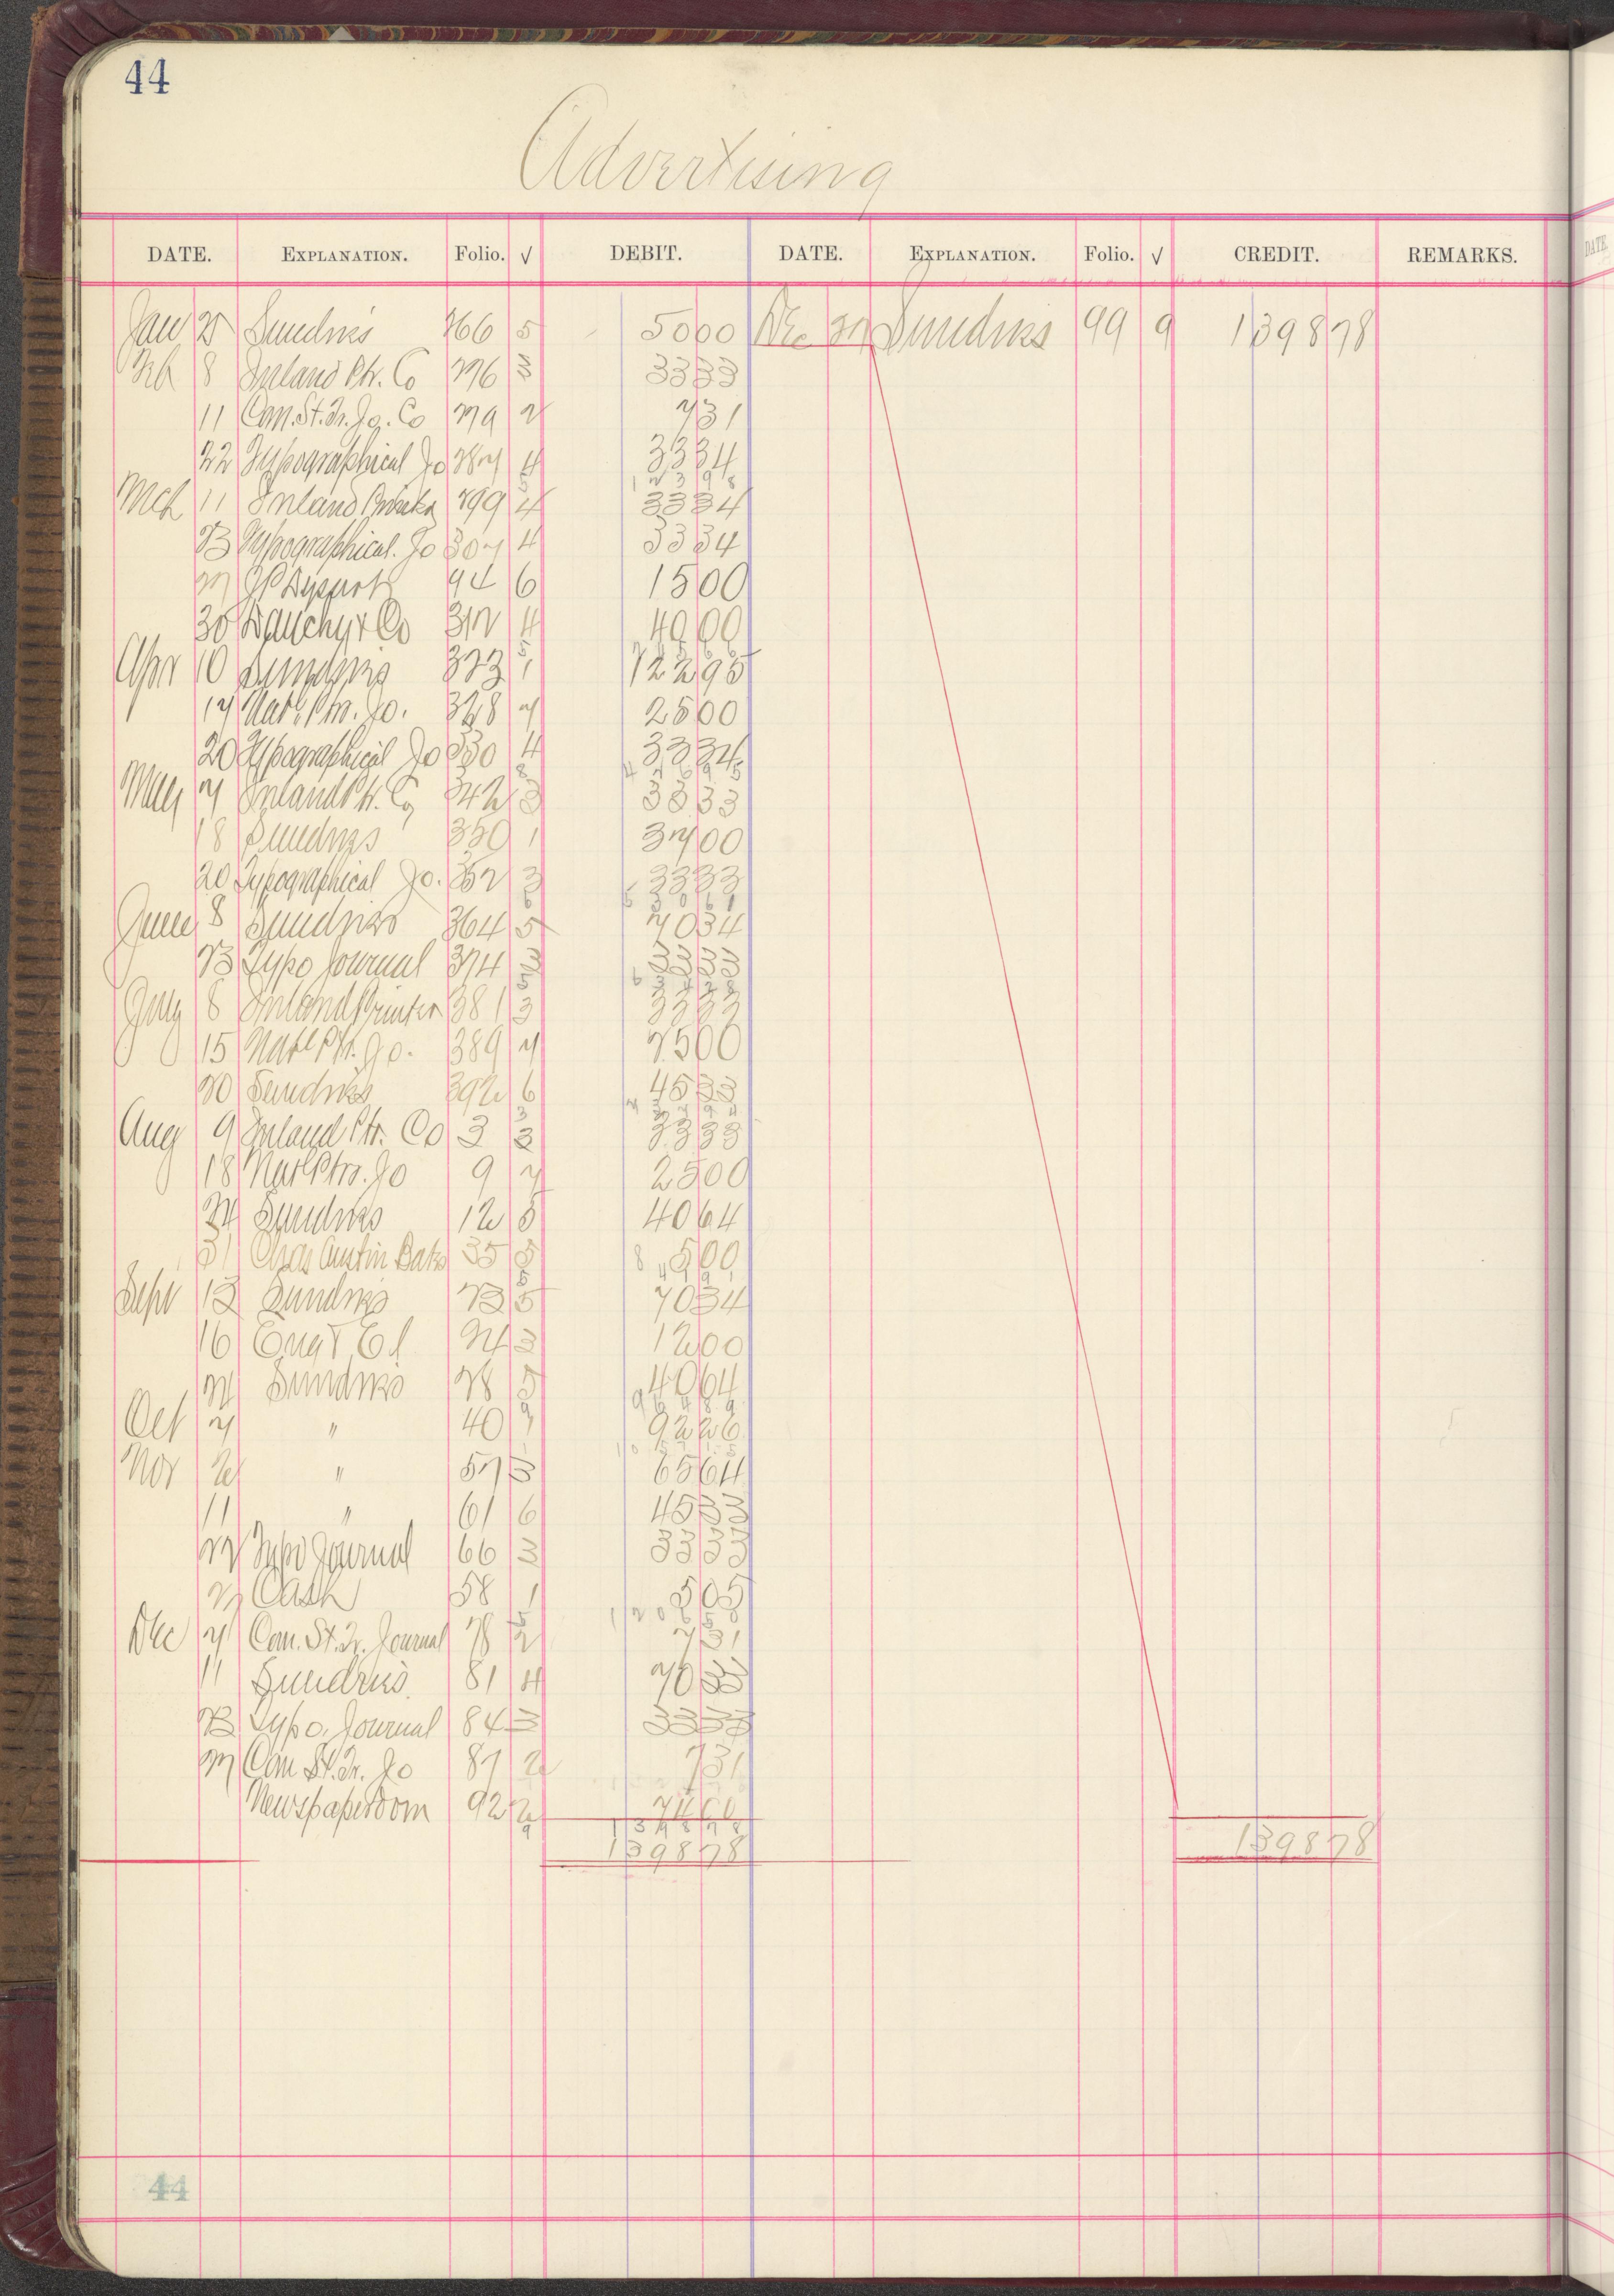 44
Advertising
DATE. EXPLANATION. Folio. √ DEBIT. DATE. EXPLANATION. Folio. √ CREDIT. REMARKS.
Jan 25 Sundries 266 5 5000 Dec 27 Sundries 99 9 139878
Feb 8 Inland Ptr. Co 276 3 3333
11 Com. St. Tr. Jo. Co 279 2 731
22 Typographical Jo 287 4 3334
12398
Mch 11 Inland Printer 299 4 3334
23 Typographical. Jo 307 4 3334
27 94 6 1500
30 Dauchy & Co 312 4 4000
Apr 10 Sundries 323 1 12295
17 Natl. Ptr. Jo. 328 7 2500
20 Typographical Jo 330 4 3334
47695
May 7 Inland Ptr. Co 342 3 3333
18 Sundries 350 1 3700
20 Typographical Jo. 352 3 3333
June 8 Sundries 364 5 7034
23 Typo Journal 374 3 3333
July 8 Inland Printer 381 3 3333
15 Natl Ptr. Jo. 389 7 2500
20 Sundries 392 6 4533
Aug 9 Inland Ptr. Co 3 3 3333
18 Natl Ptr. Jo 9 7 2500
24 Sundries 12 5 4064
31 Chas Austin Bates 35 5 500
84191
Sept 13 Sundries 23 5 7034
16 Eng & El 24 3 1200
24 Sundries 28 5 4064
96489
Oct 7 " 40 1 9226
105715
Nov 2 " 57 3 6564
11 " 61 6 4533
22 Typo Journal 66 3 3333
27 Cash 58 1 505
120650
Dec 7 Com. St. Tr. Journal 78 2 731
11 Sundries 81 4 7033
23 Typo. Journal 84 3 3333
27 Com St. Tr. Jo 87 2 731
Newspaperdom 92 2
139878
139878 139878
44